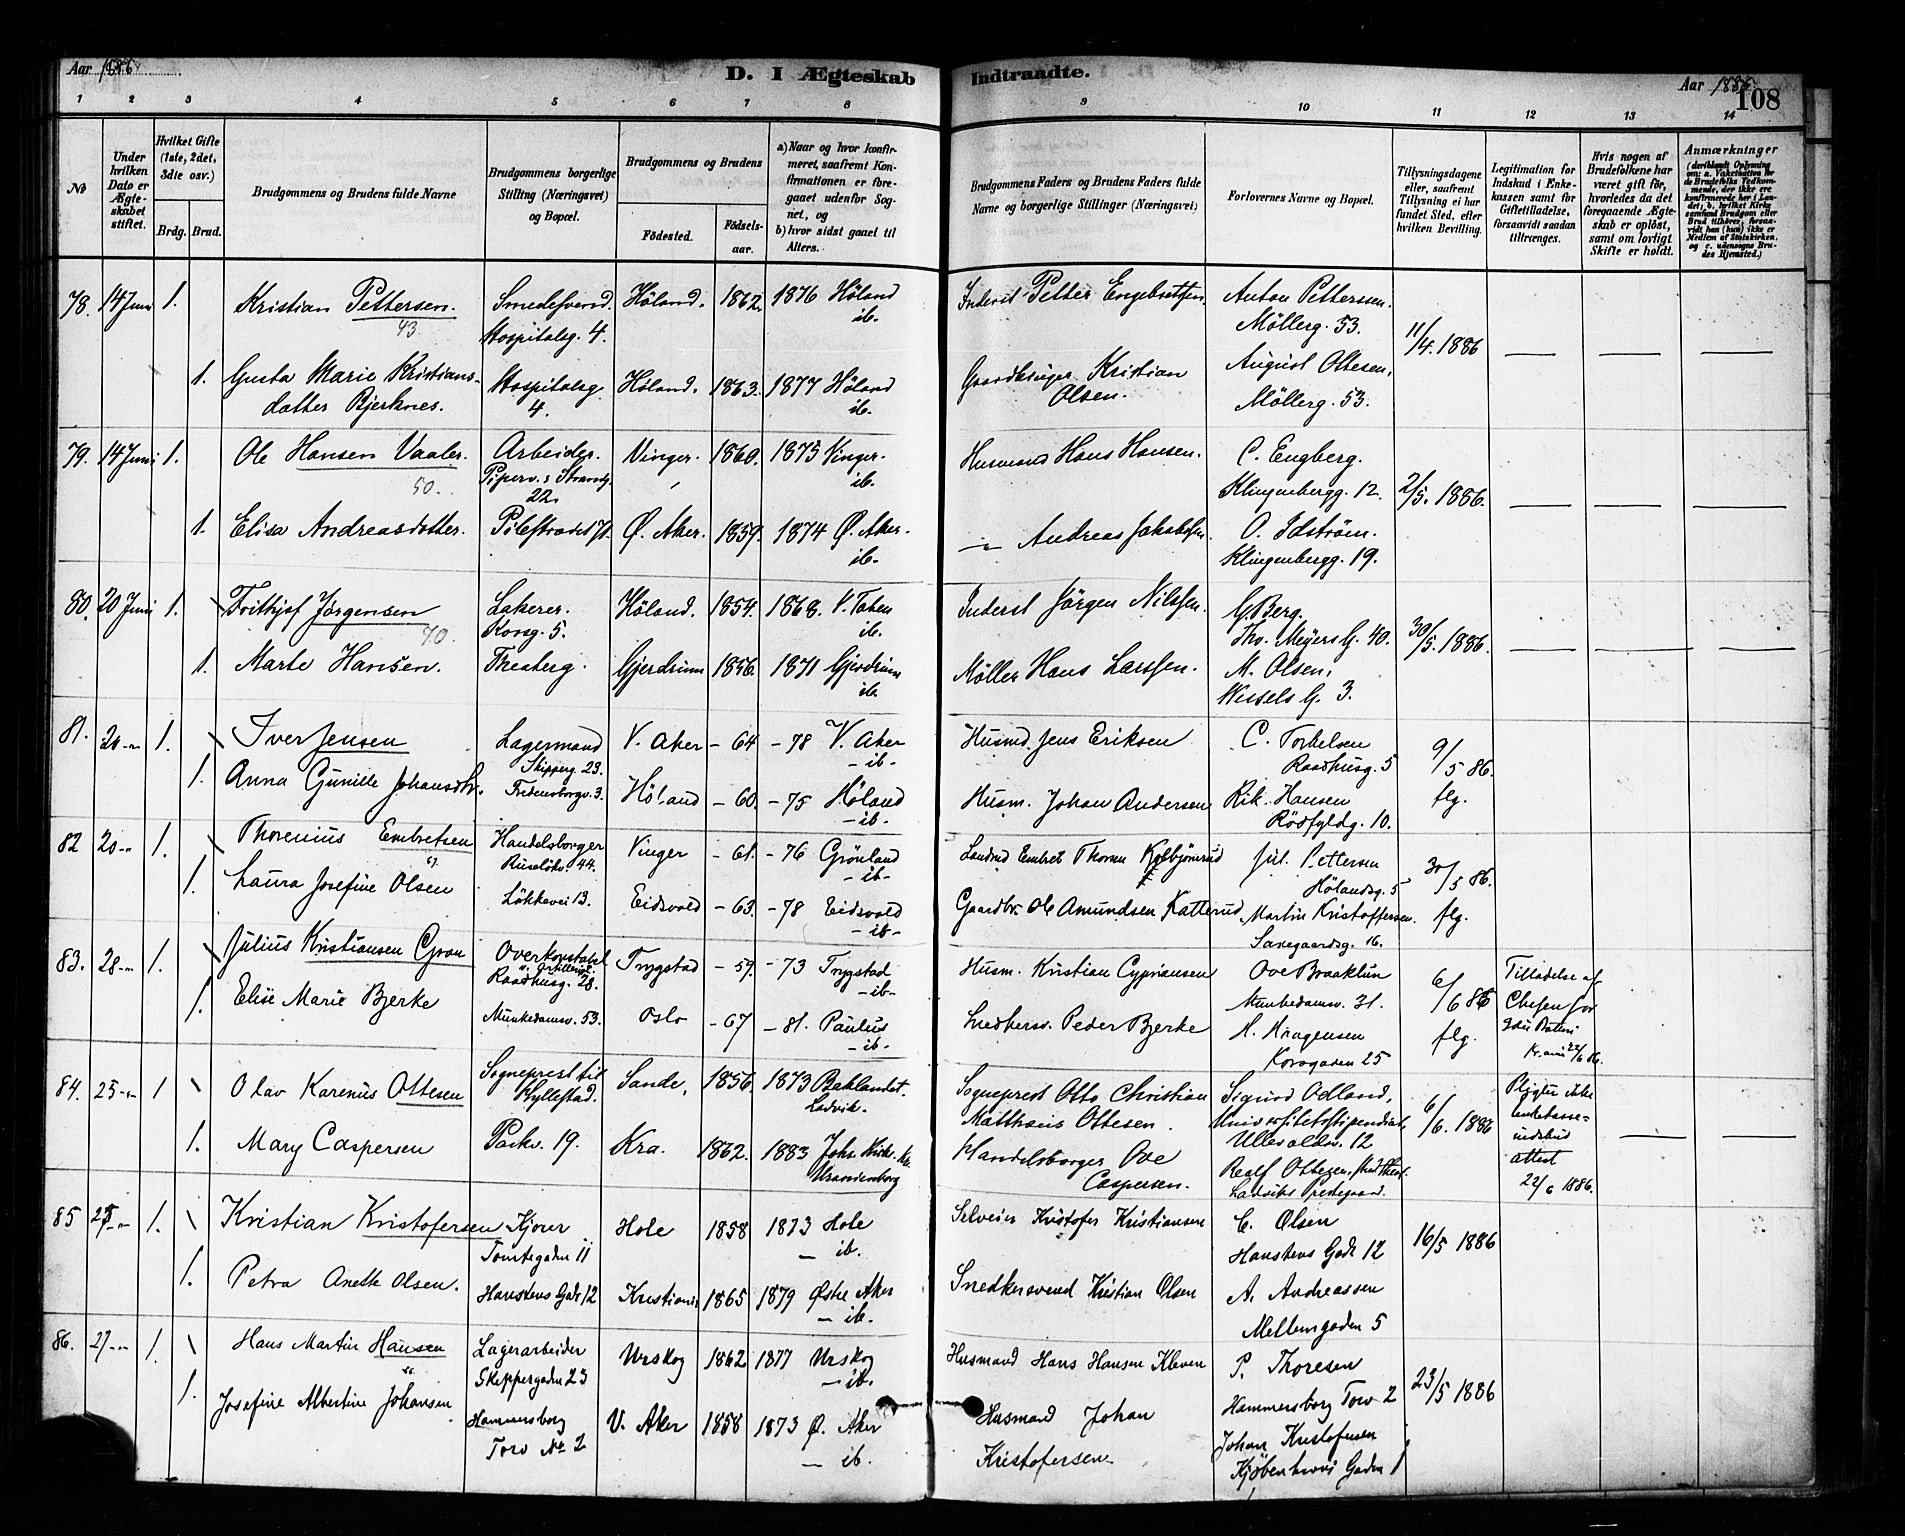 Aar 1886
D. I Ægteskab Indtraadte.
Aar 1886
108
1 2 3 4 5 6 7 8 9 10 11 12 13 14
No
Under hvilken Dato er Ægteskabet stiftet.
Hvilket Gifte (1ste, 2det, 3die osv.)
Brdg. Brud.
Brudgommens og Brudens fulde Navne
Brudgommens borgerlige Stilling (Næringsvei) og Bopæl.
Brudgommens og Brudens
Födested.
Födselsaar.
a) Naar og hvor konfirmeret, saafremt Konfirmationen er foregaaet udenfor Sognet, og
b) hvor sidst gaaet til Alters.
Brudgommens Faders og Brudens Faders fulde Navne og borgerlige Stillinger (Næringsvei)
Forlovernes Navne og Bopæl.
Tillysningsdagene eller, saafremt Tillysning ei har fundet Sted, efter hvilken Bevilling.
Legitimation for Indskud i Enkekassen samt for Giftetilladelse, forsaavidt saadan tiltrænges.
Hvis nogen af Brudefolkene har været gift för, hvorledes da det foregaaende Ægteskab er oplöst, samt om lovligt Skifte er holdt.
Anmærkninger
(deriblandt Oplysning om: a. Vakcination for de Brudefolks Vedkommende, der ikke ere konfirmerede her i Landet; b. hvilket Kirkesamfund Brudgom eller Brud tilhörer, forsaavidt han (hun) ikke er Medlem af Statskirken, og c. udensogns Brudes Hjemsted.)
78. 14 Juni 1. Kristian Pettersen. Smedesvend. Höland. 1862. 1876 Höland Inderst Petter Engebretsen. Anton Pettersen.
43 Hospitalsg. 4. ib. Möllerg. 53. 11/4. 1886
1. Gusta Marie Kristians- Hospitalsg. Höland. 1863. 1877 Höland Gaardbruger Kristian August Ottesen,
datter Bjerknes. 4. ib. Olsen. Möllerg. 53.
79. 14 Juni 1. Ole Hansen Vaaler. Arbeider. Vinger. 1860. 1875 Vinger. Husmand Hans Hansen. C. Engberg.
50. Piperv. Strandg. 22. ib. Klingenbergg. 12. 2/5. 1886.
1. Elisa Andreasdatter. Pilestrædet 71. Ø. Aker. 1859. 1874 Ø. Aker. Andreas Jakobsen. O. Idström.
ib. Klingenbergg. 19.
80. 20 Juni 1. Frithjof Jörgensen Lakerer. Höland. 1854. 1868. V. Toten Inderst Jörgen Nilssen. G. Berg.
70. Korsg. 5. ib. Tho. Meyers G. 40. 30/5. 1886.
1. Marte Hansen. Theaterg. Gjerdrum 1856. 1871 Gjerdrum Möller Hans Larssen. M. Olsen,
ib. Wessels G. 3.
81. 20 1. Iver Jensen Lagermand V. Aker - 64 - 78 V. Aker Husmd. Jens Eriksen C. Torkelsen
Skipperg. 23. - ib - Raadhusg. 5 9/5 86.
1. Anna Gunille Johansdtr. Fredensborgv. 3. Höland - 60. - 75 Höland Husm. Johan Andersen Rik. Hansen flg.
- ib. Rödfyldg. 10.
82 20 1. Thorenius Embretsen Handelsborger Vinger - 61. - 76 Grönland Embret Thorsen Kolbjörnsrud Jul. Pettersen
Ruselökv. 44. - ib - Hölandsg. 5 30/5 86.
1. Laura Josefine Olsen Lökkevei 13. Eidsvold - 63. - 78 Eidsvold Gaardbr. Ole Amundsen Katterud Martin Kristoffersen. flg.
- ib - 16.
83. 28 1. Julius Kristiansen Gran Overkonstabel v. Artilleriet Trygstad - 59. - 73 Trygstad Husm. Kristian Cyprianson Ove Braaklun Tilladelse af
Raadhusg. 28. - ib - Munkedamsv. 31. 6/6 86 Chefen for
1. Elise Marie Bjerke Munkedamsv. 53. Oslo - 67 - 81. Paulus Snedkersv. Peder Bjerke H. Haagensen flg.
- ib. Korsgaden 25 22/6 86.
84. 25 1 Olav Karenus Ottesen Sogneprest til Sande, 1856. 1873 Baklandet. Sogneprest Otto Christian Sigurd Odland, Pligter ikke
Hyllestad. Ladvik. Matthæus Ottesen. Universitetsstipendiat 6/6. 1886 enkekasse-
Ullevoldsv. 12 indskud
1. Mary Caspersen Parkv. 19. Kra. 1862. 1883 Johs. Kirke. Handelsborger Ove Ottesen, attest
Uranienborg Caspersen. Ladviks Prestegaard. 22/6 1886.
85 25 1. Kristian Kristofersen Kjører Hole 1858 1873 Hole Selveier Kristofer Kristiansen C. Olsen
Tomtegaden 11 - ib. Hanstens Gade 12 16/5 1886
1. Petra Anette Olsen. Hanstens Gade 12 Kristiania 1865 1879 Østre Aker Snedkersvend Kristian Olsen A. Andreassen
- ib. Mellemgaden 5
86. 27 1. Hans Martin Hansen Lagerarbeider Urskog 1862 1877 Urskog Husmand Hans Hansen Kleven P. Thoresen
Skippergaden 23 - ib. Hammersborg Torv 2 23/5 1886
1. Josefine Albertine Johansen Hammersborg V. Aker 1858 1873 Ø. Aker Husmand Johan Johan Kristofersen
Torv No 2 - ib. Kristofersen Kjöbenhavns Gaden 1